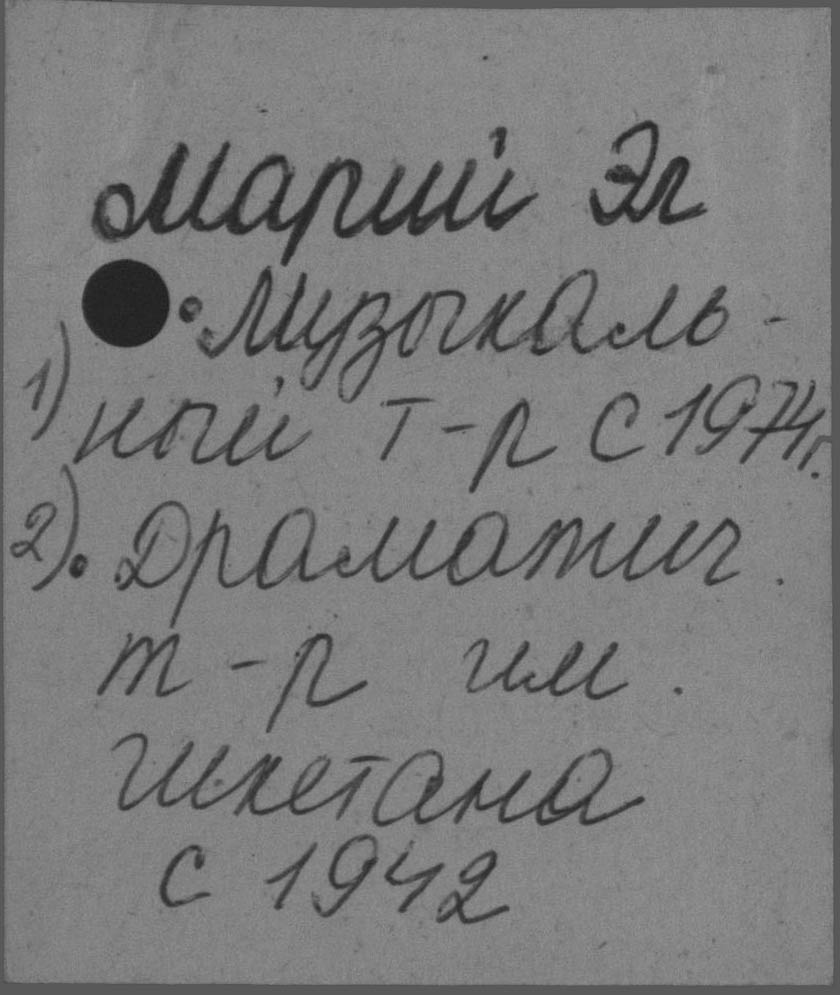 Марий Эл
• Музыкаль-
1) ный т-р с 1974 г.
2). Драматич.
т-р им.
Шкетана
с 1942